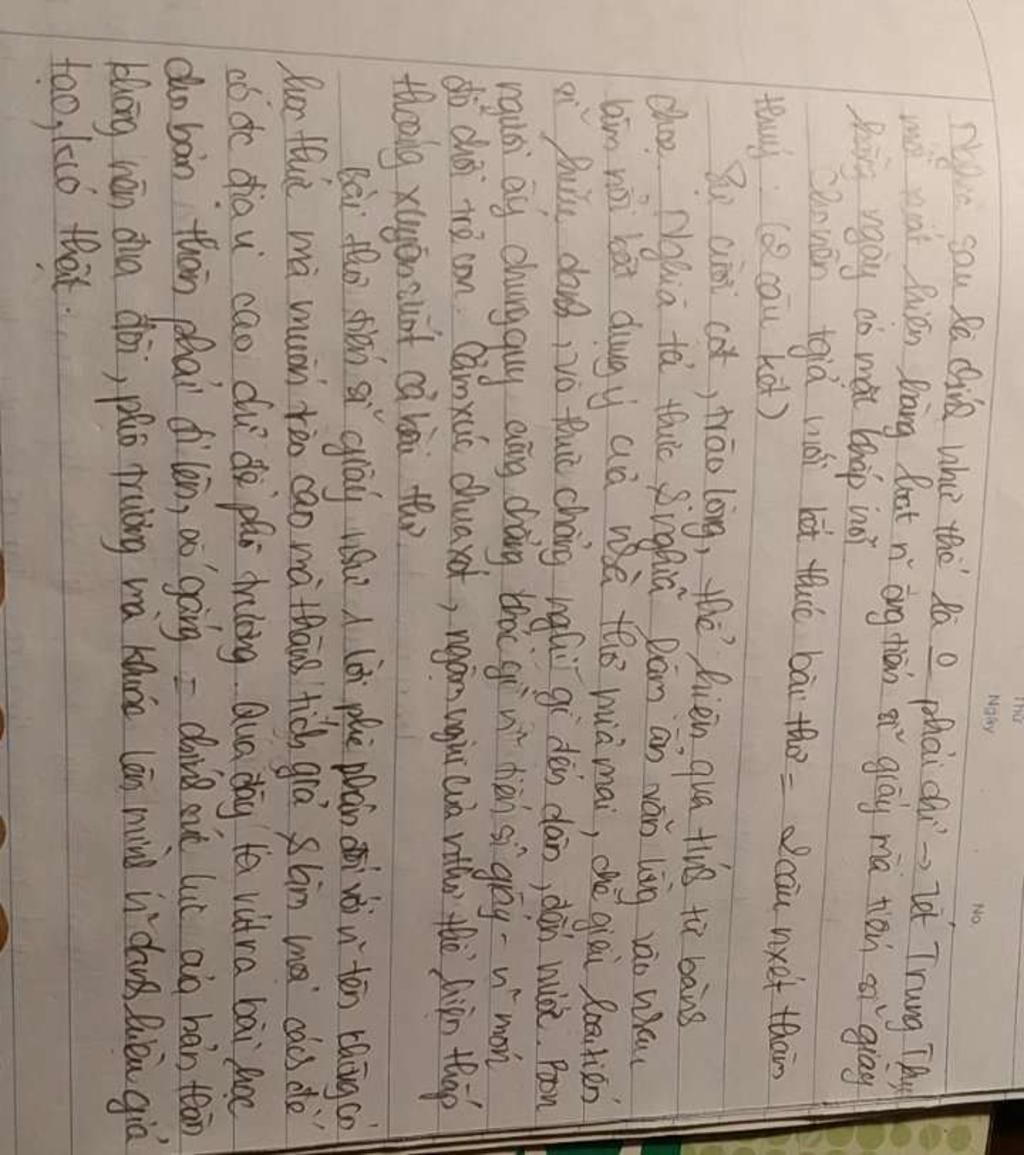 Thứ
Ngày
No.
sau là chính như thế là 0 phải chỉ → Tết Trung Thu
mới xuất hiện hàng loạt n~ ông tiến sĩ giấy mà tiến sĩ giấy
hằng ngày có mặt khắp nơi
Cho nên tgiả mới kết thúc bài thơ = 2 câu nxét thâm
thuý. (2 câu kết)
Sự cười cợt, trào lộng, thể hiện qua tính từ bảnh
choẹ. Nghĩa tả thực & nghĩa hàm ẩn văn lồng vào nhau
làm nổi bật dụng ý của nhà thơ mỉa mai, chế giễu loại tiến
sĩ hữu danh, vô thực chẳng nghĩ gì đến dân, đến nước. Bọn
người ấy chung quy cũng chẳng khác gì n~ tiến sĩ giấy - n~ món
đồ chơi trẻ con. Cảm xúc chua xót, ngậm ngùi của nthơ thể hiện thấp
thoáng xuyên suốt cả bài thơ.
Bài thơ tiến sĩ giấy như 1 lời phê phán đối với n~ tên không có
học thức mà muốn trèo cao mà thành tích giả & làm mọi cách để
có đc địa vị cao chỉ để phô trương. Qua đây ta rút ra bài học
cho bản thân phải đi lên, cố gắng = chính sức lực của bản thân
không nên đua đòi, phô trương mà khoác lên mình n~ danh hiệu giả
tạo, k có thật.